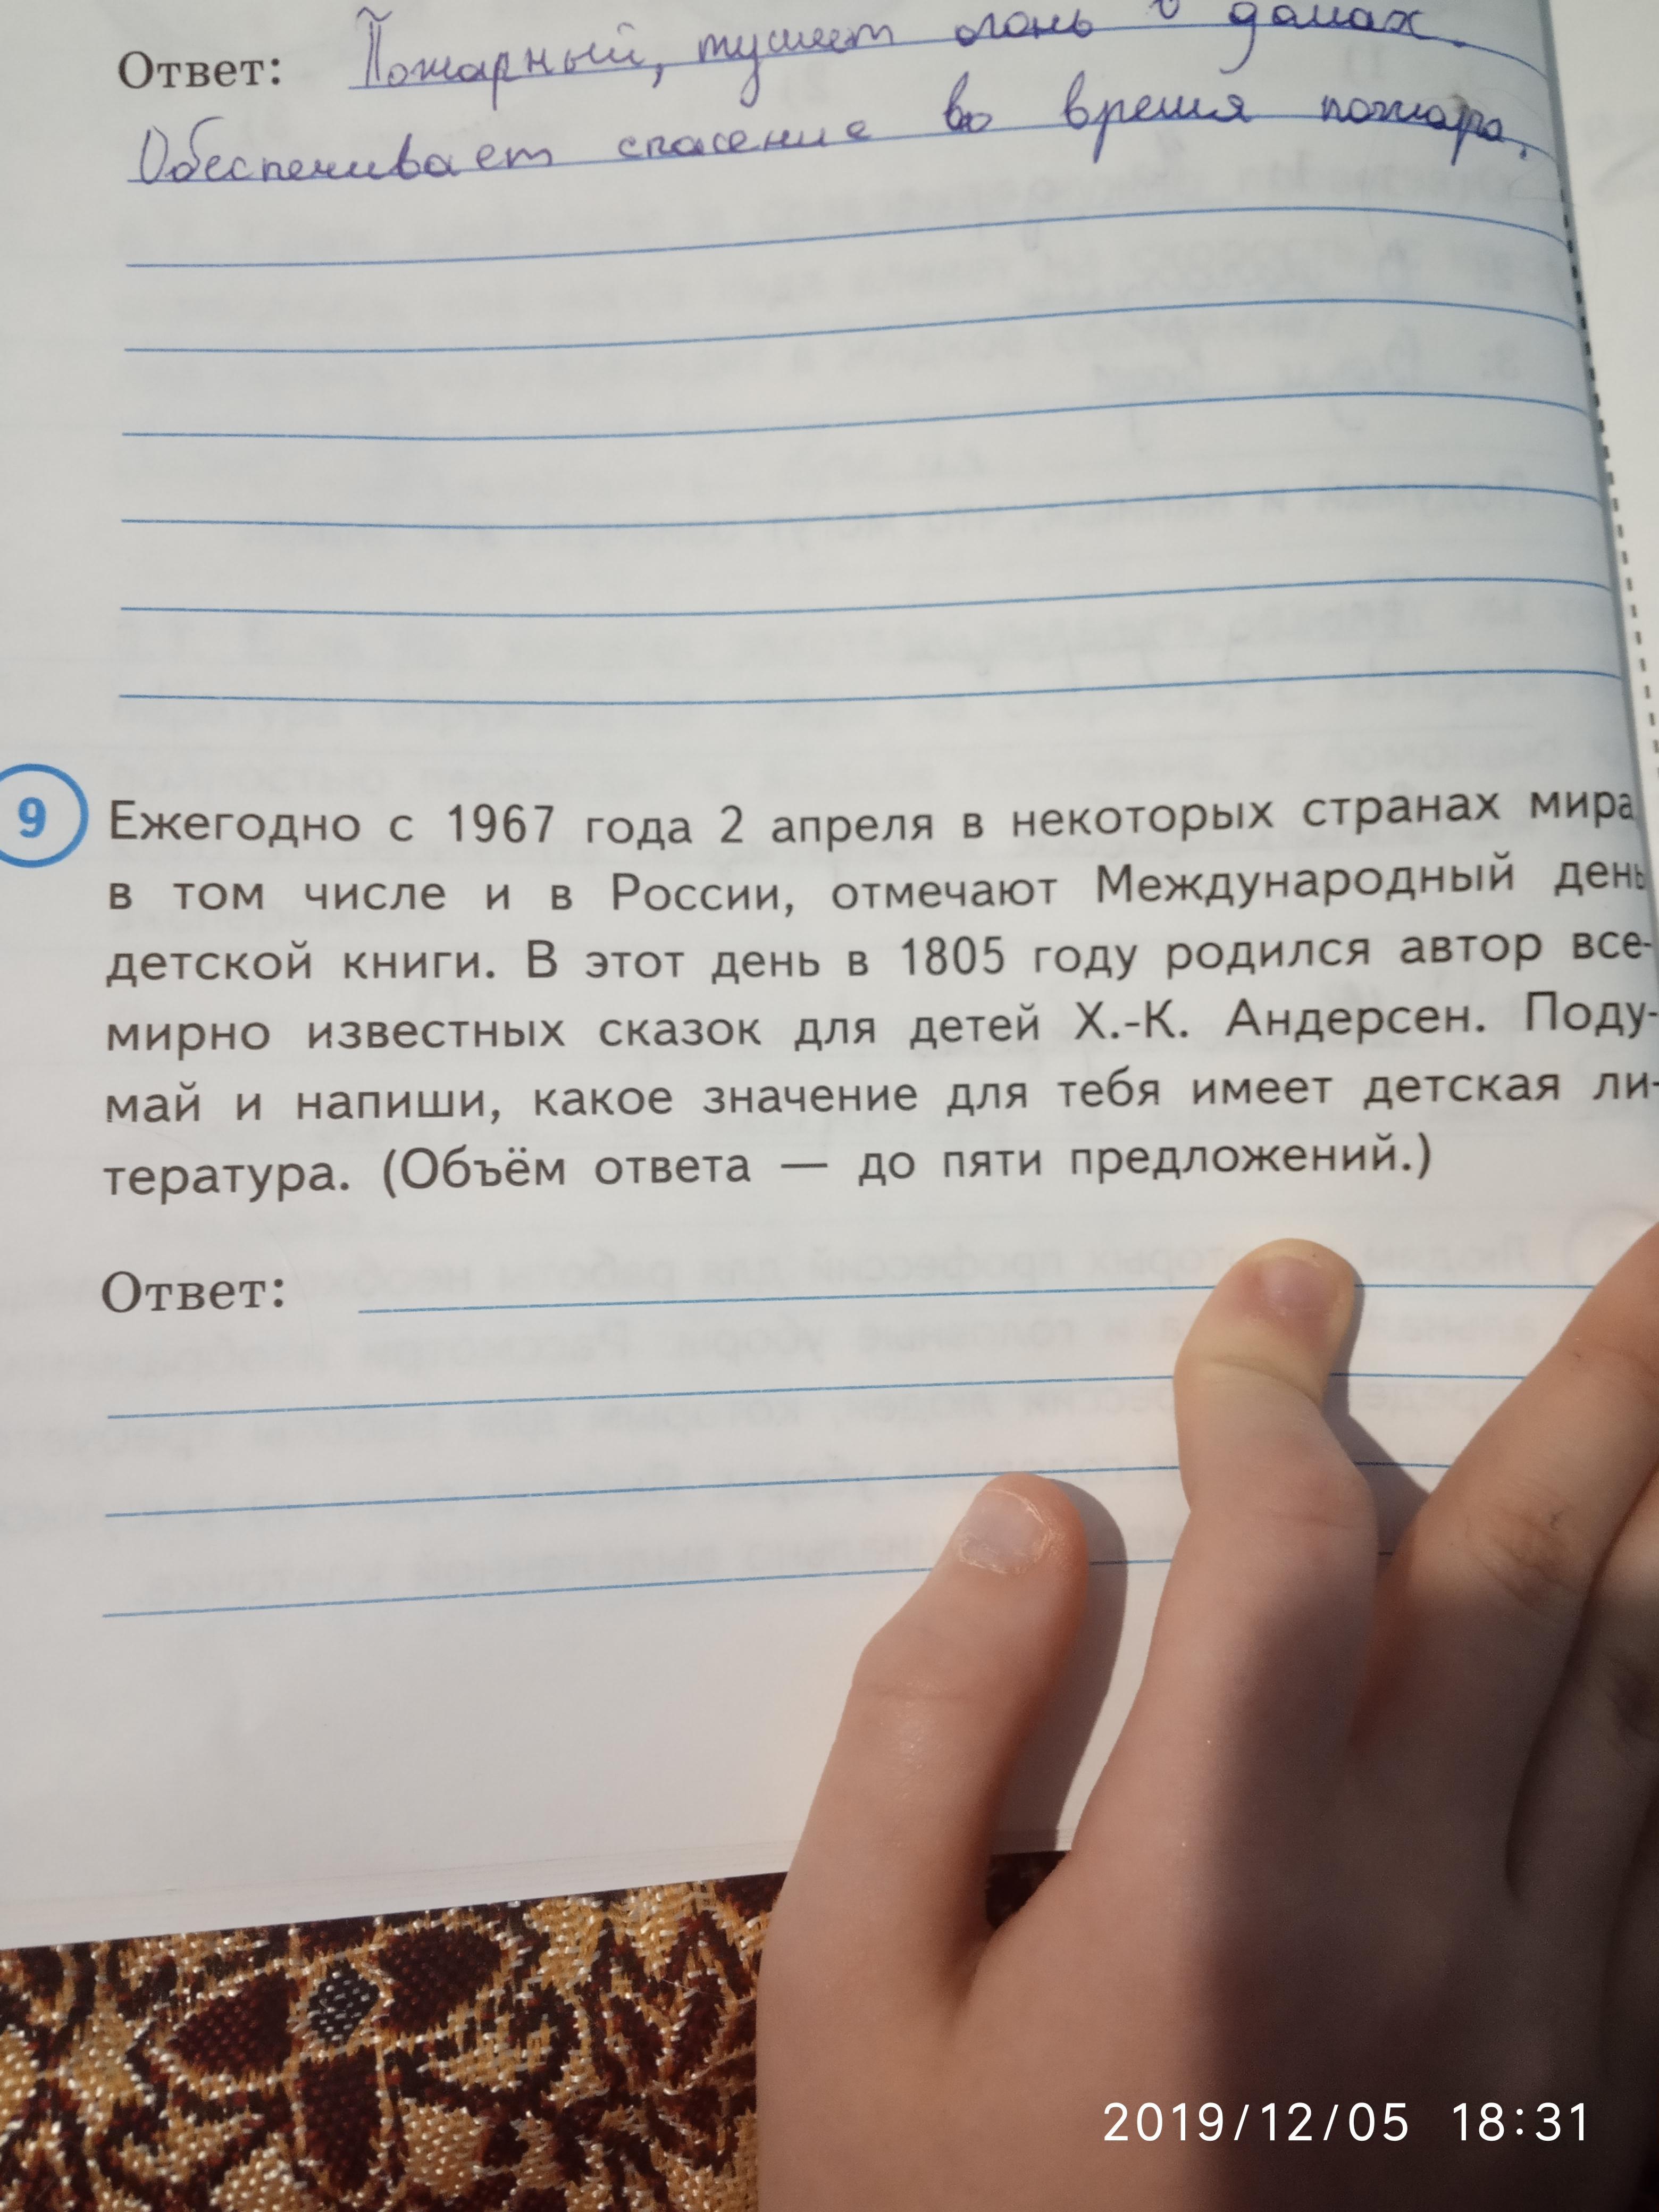 Ответ: Пожарный, тушит огонь в домах.
Обеспечивает спасение во время пожара.
9 Ежегодно с 1967 года 2 апреля в некоторых странах мира
в том числе и в России, отмечают Международный день
детской книги. В этот день в 1805 году родился автор все-
мирно известных сказок для детей Х.-К. Андерсен. Поду-
май и напиши, какое значение для тебя имеет детская ли-
тература. (Объём ответа — до пяти предложений.)
Ответ:
2019/12/05 18:31